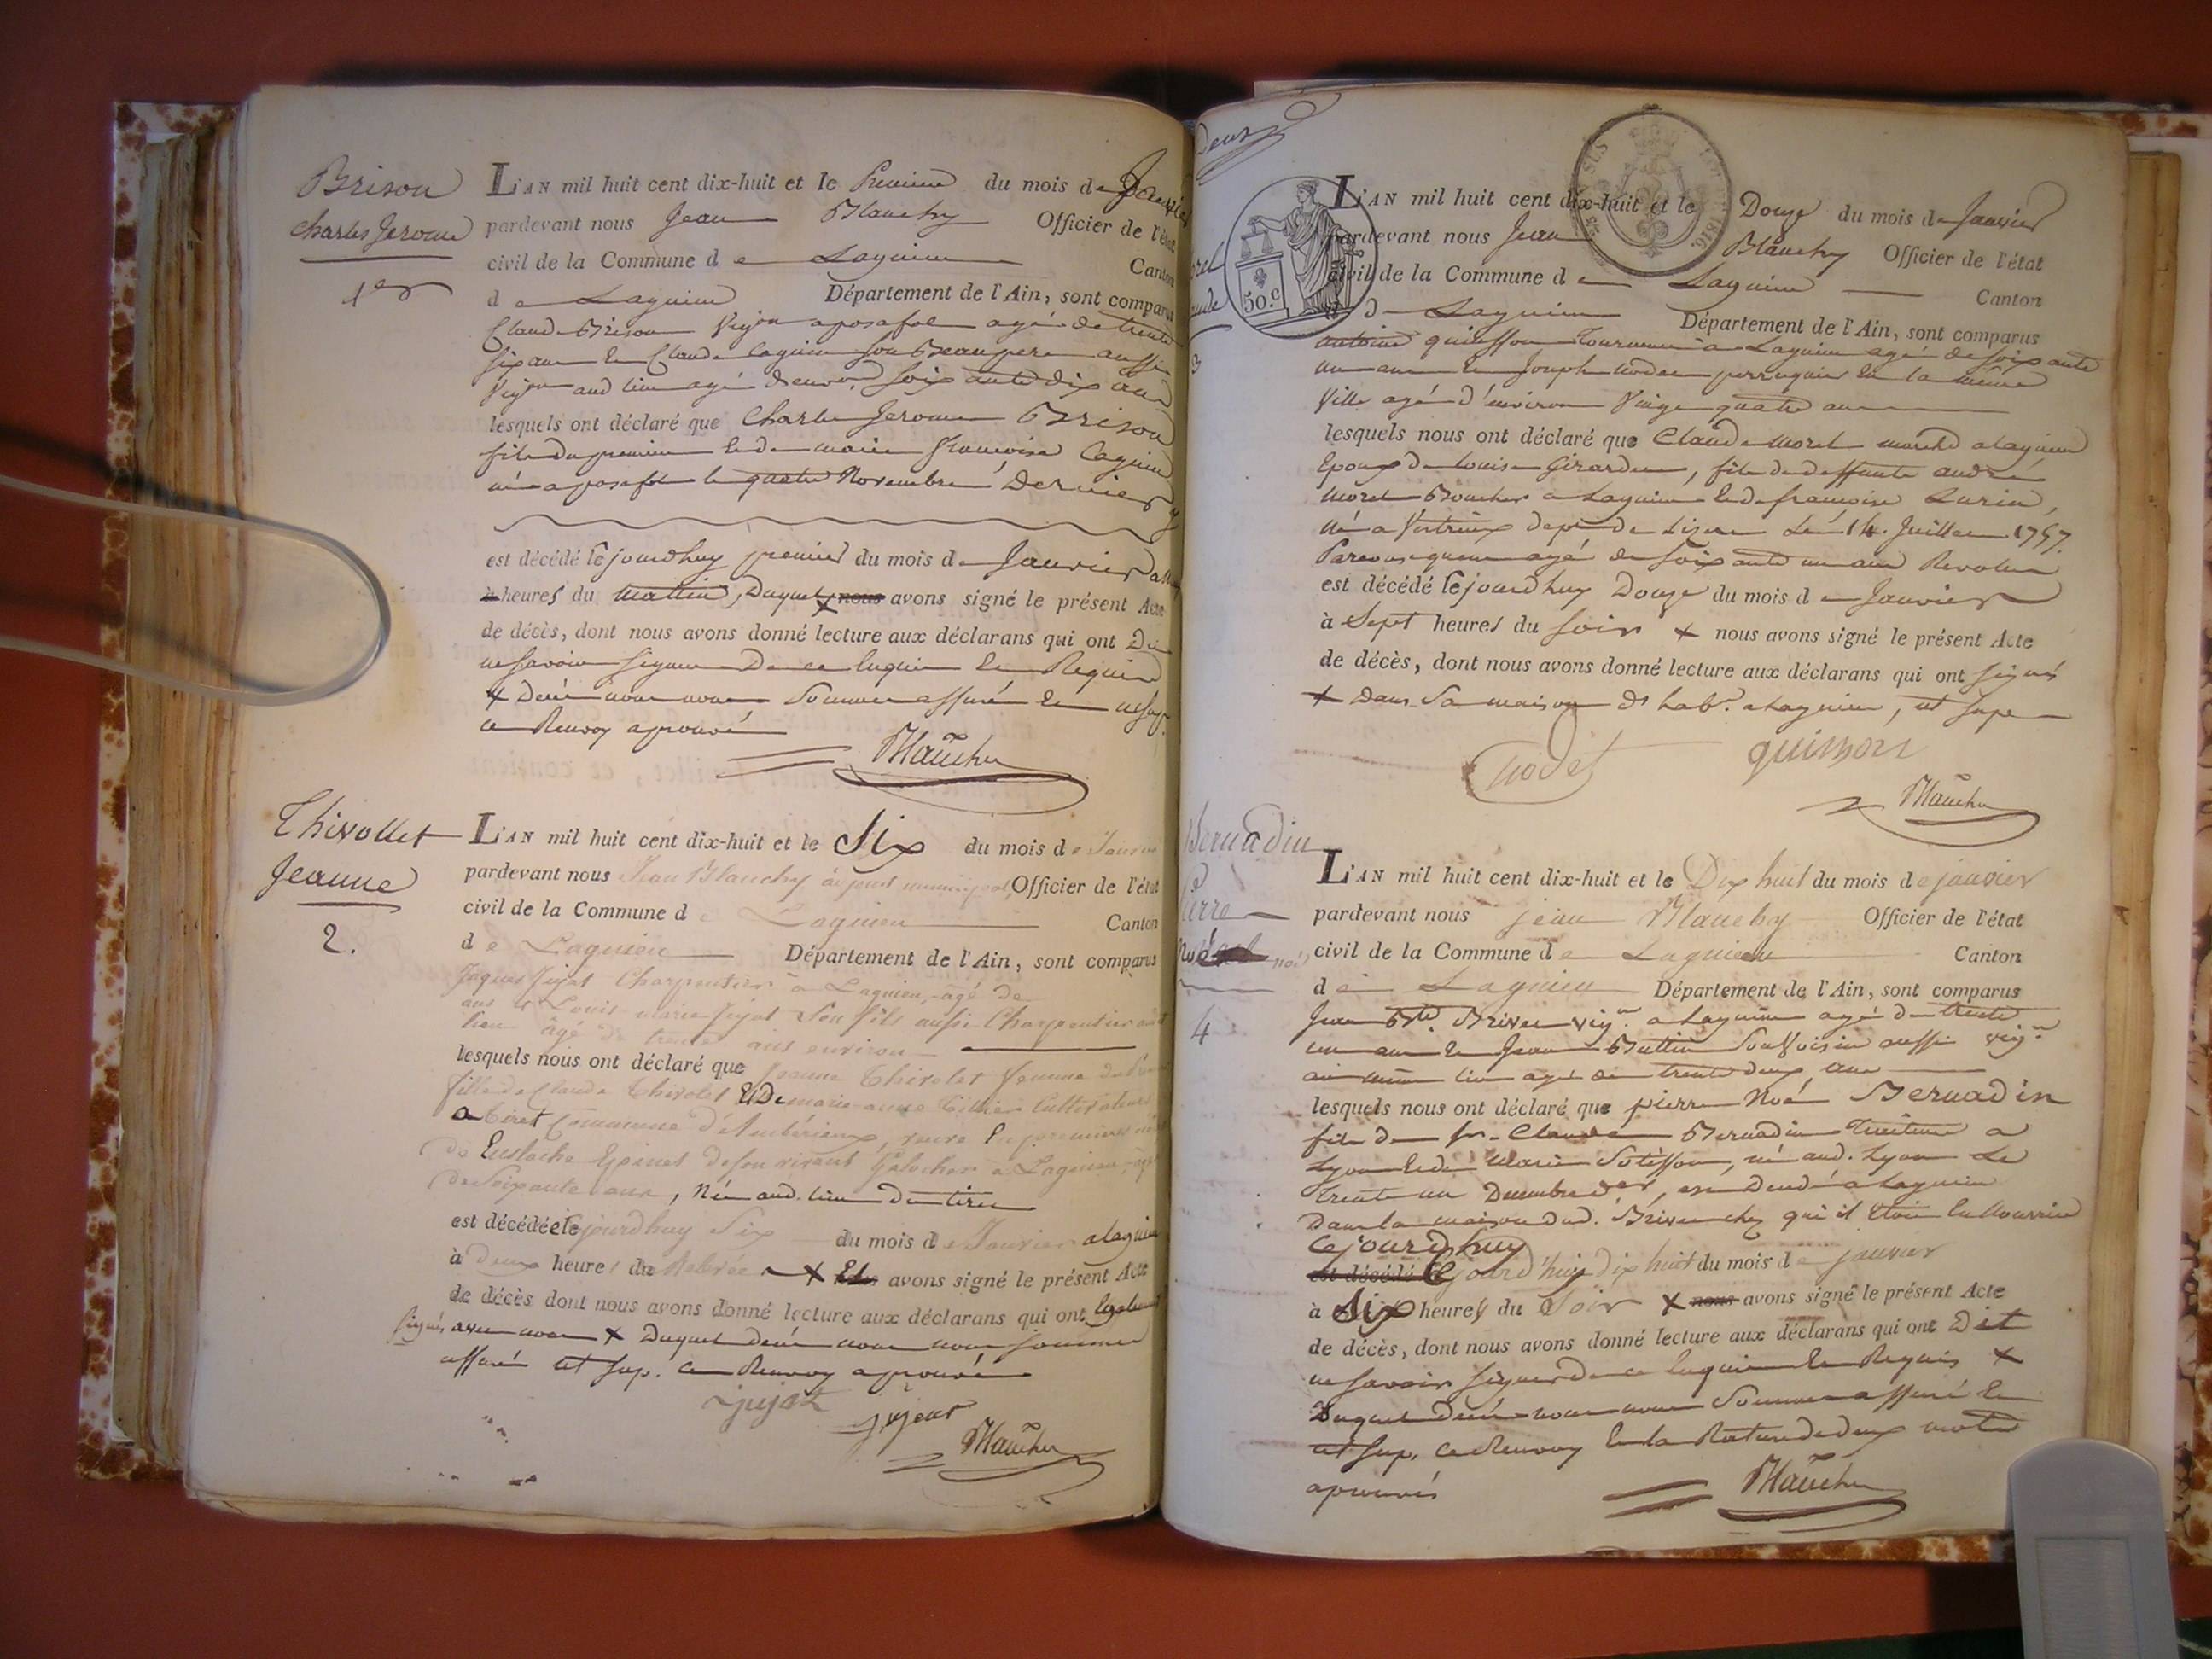 Brison
Charles Jerome
1er
L'AN mil huit cent dix-huit et le Premier du mois de Janvier
pardevant nous Jean Blanchy Officier de l'état
civil de la Commune de Lagnieu Canton
de Lagnieu Département de l'Ain, sont comparus
Claude Brison Vigon a posafol agé de trente
six ans et Claude Cagnin son Beaupere aussi
Vigon aud lieu agé d'environ soixante dix ans
lesquels ont déclaré que Charle Jerome Brison
fils du premier et de marie françoise Cagnin
né a posafol le quatre Novembre Dernier
est décédé le jourdhuy premier du mois de Janvier
heures du matin, Duquel nous avons signé le présent Acte
de décès, dont nous avons donné lecture aux déclarans qui ont Dit
ne savoir signer De ce Enquis et Requis
+ Decés nous nous sommes assuré et
ce Renvoy aprouvé
Blanchy
Thivollet
Jeanne
2.
L'AN mil huit cent dix-huit et le Six du mois de Janvier
pardevant nous Jean Blanchy adjoint municipal, Officier de l'état
civil de la Commune de Lagnieu Canton
de Lagnieu Département de l'Ain, sont comparus
Jaques Jujat Charpentier à Lagnieu, âgé de
ans et Louis marie Jujat Son fils aussi Charpentier
lieu âgé de trente ans environ
lesquels nous ont déclaré que Jeanne Thivolet femme
fille de Claude Thivolet Et De marie anne Cultivateurs
a Commune d'Ambérieux, veuve En premieres
de Eustache Epinet de son vivant Galocher a Lagnieu,
de Soixante ans, Née aud. lieu
est décédée le jourdhuy Six du mois de Janvier a lagnieu
à deux heures de Relevée + avons signé le présent Acte
de décès dont nous avons donné lecture aux déclarans qui ont
signés avec nous + Duquel decés nous nous sommes
assuré ut sup. ce Renvoy aprouvé
Jujat
Jujat
Blanchy
Deux
3
50.c
1816.
L'AN mil huit cent dix-huit et le Douze du mois de Janvier
pardevant nous Jean Blanchy Officier de l'état
civil de la Commune de Lagnieu Canton
de Lagnieu Département de l'Ain, sont comparus
antoine quisson Tourneur a Lagnieu agé de soixante
un ans et Joseph Nodet perruquier En la même
Ville agé d'environ Vingt quatre ans
lesquels nous ont déclaré que Claude Morel march'd a lagnieu
Epoux de Louise Girardon, fils de deffunts andré
Morel Boucher a Lagnieu et de françoise Lurin,
né a Vertrieux dept de Lizere Le 14. Juillet 1757.
Par consequent agé de soixante un ans Revolus
est décédé le jourdhuy Douze du mois de Janvier
à Sept heures du soir + nous avons signé le présent Acte
de décès, dont nous avons donné lecture aux déclarans qui ont signés
+ Dans Sa maison d'hab.on a Lagnieu, ut supra
Nodet quisson
Blanchy
Bernadin
Pierre
Noé
4
L'AN mil huit cent dix-huit et le Dix huit du mois de janvier
pardevant nous jean Blanchy Officier de l'état
civil de la Commune de Lagnieu Canton
de Lagnieu Département de l'Ain, sont comparus
Jean Bte. Brivet vig.on a Lagnieu agé de trente
un ans et Jean Buttin Son Voisin aussi vig.on
au même lieu agé de trente deux ans
lesquels nous ont déclaré que pierre Noé Bernadin
fils de sr. Claude Bernadin a
Lyon et de Marie Sotisson, né aud. Lyon Le
trente un Decembre der, est Decedé a Lagnieu
Dans la maison dud. Brivet chez qui il Etoit En Nourrice
Cejourdhuy
est décédé le jourd'huy dix huit du mois de janvier
à Six heures du Soir + nous avons signé le présent Acte
de décès, dont nous avons donné lecture aux déclarans qui ont Dit
ne savoir signer De ce Enquis et Requis +
Duquel decés nous nous Sommes assuré et
ut sup. ce Renvoy Et la Rature de deux mots
aprouvés
Blanchy